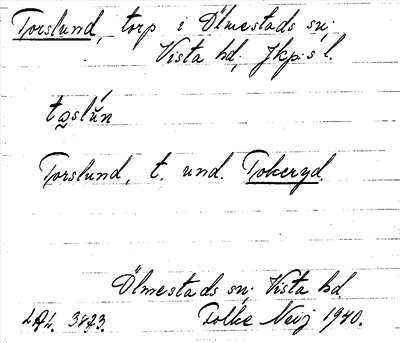 Torslund, torp i Ölmestads sn;
Vista hd; Jkp:s l.
tǫslŭ́n
Torslund, t. und. Tokeryd.
Ölmestads sn; Vista hd.
LAL. 3873. Folke Neij 1940.